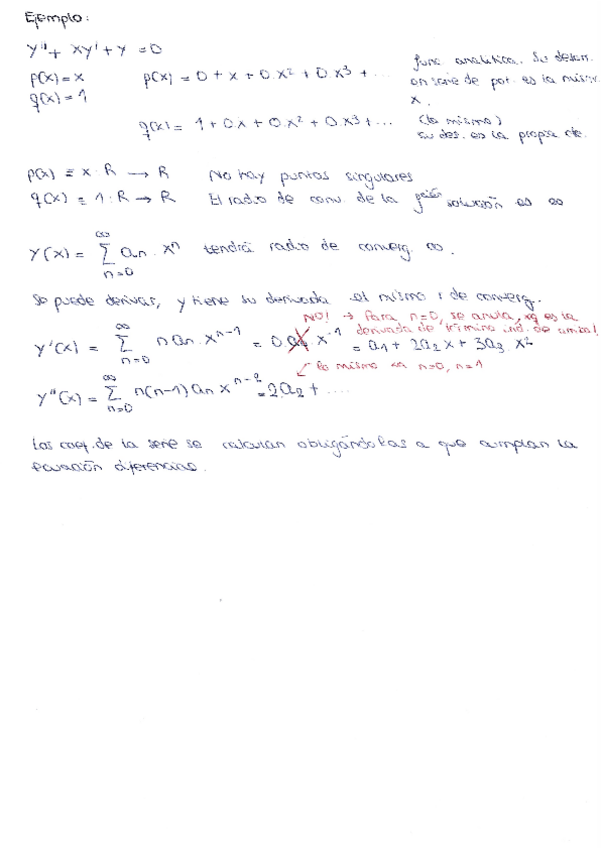 Ejemplo:
y'' + xy' + y = 0
p(x) = x
q(x) = 1
p(x) = 0 + x + 0.x² + 0.x³ + ...
func. analítica. Su desarr.
en serie de pot. es la misma
x.
q(x) = 1 + 0.x + 0.x² + 0.x³ + ...
(lo mismo)
su des. es la propia cte.
p(x) = x : R → R No hay puntos singulares
q(x) = 1 : R → R El radio de conv. de la solución es ∞
y(x) = ∑ n=0 ∞ an . xⁿ tendrá radio de converg. ∞.
Se puede derivar, y tiene su derivada el mismo r de converg.
NO! → Para n=0, se anula, xq es la
derivada del término ind. de arriba!
y'(x) = ∑ n=0 ∞ n an . xⁿ⁻¹ = 0.a x⁻¹ = a₁ + 2a₂x + 3a₃ x²
lo mismo en n=0, n=1
y''(x) = ∑ n=0 ∞ n(n-1) an xⁿ⁻² = 2a₂ + ....
Los coef. de la serie se calculan obligándolas a que cumplan la
ecuación diferencial.